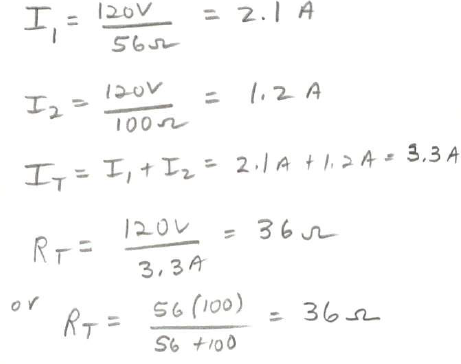 I₁ = 120V / 56Ω = 2.1 A
I₂ = 120V / 100Ω = 1.2 A
I_T = I₁ + I₂ = 2.1A + 1.2A = 3.3A
R_T = 120V / 3.3A = 36Ω
or R_T = 56(100) / 56 + 100 = 36Ω